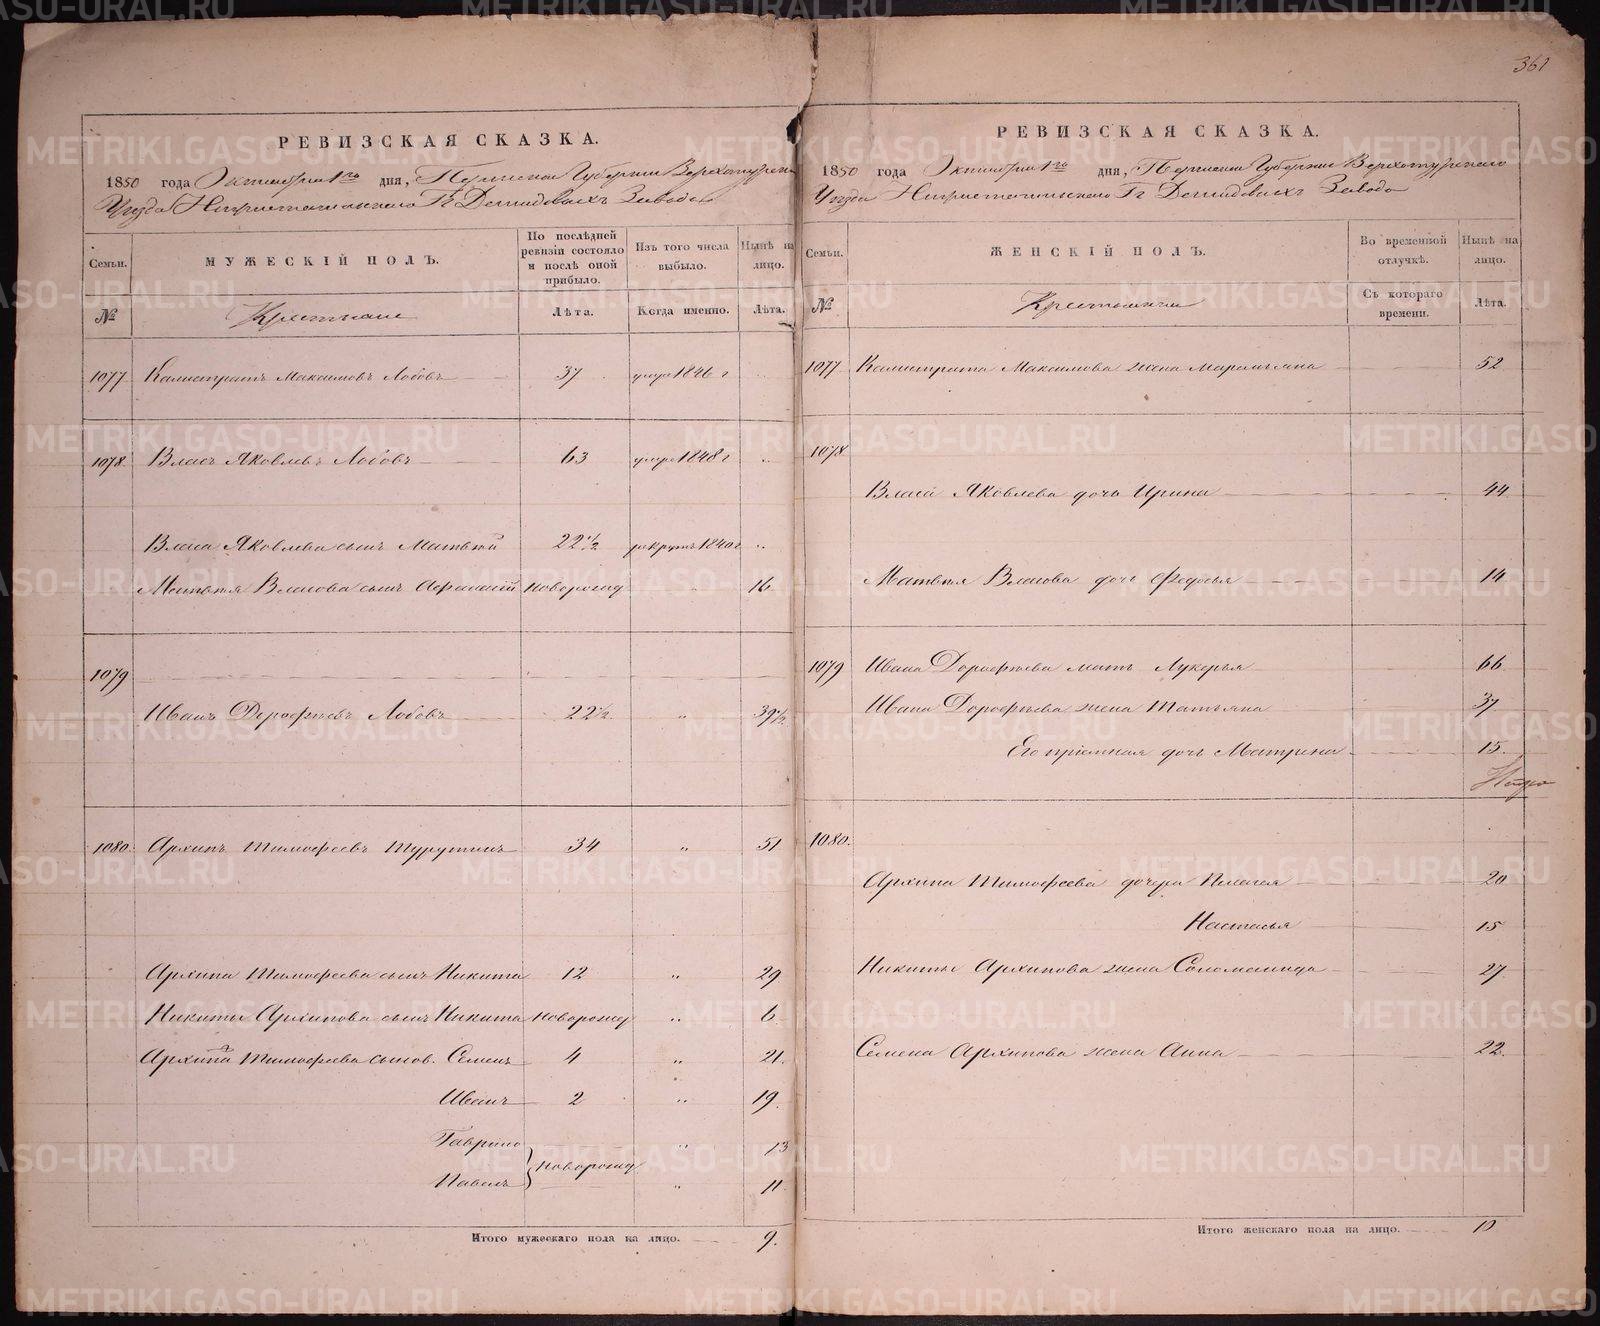 361
РЕВИЗСКАЯ СКАЗКА.
1850 года Октября 1го дня, Пермской Губернии Верхотурскаго
Уезда Нижнетагильскаго Гг Демидовыхъ Завода
Семьи.
МУЖЕСКІЙ ПОЛЪ.
По послѣдней ревизіи состояло и послѣ оной прибыло.
Изъ того числа выбыло.
Нынѣ на лицо.
№
Крестьяне
Лѣта.
Когда именно.
Лѣта.
1077 Калистратъ Максимовъ Лобовъ 37 умре 1846 г
1078 Власъ Яковлевъ Лобовъ 63 умре 1848 г „
Власа Яковлева сынъ Матвѣй 22 1/2 рекрутъ 1840 г „
Матвѣя Власова сынъ Афанасій новорожд 16
1079
Иванъ Дорофѣевъ Лобовъ 22 1/2 „ 39 1/2
1080. Архипъ Тимофеевъ 34 „ 51
Архипа Тимофеева сынъ Никита 12 „ 29
Никиты Архипова сынъ Никита новорожд „ 6
Архипа Тимофеева сынов. Семенъ 4 „ 21.
Иванъ 2 „ 19.
Гаврило „ 13
новорожд
Павелъ „ 11.
Итого мужескаго пола на лицо. 9.
РЕВИЗСКАЯ СКАЗКА.
1850 года Октября 1го дня, Пермской Губернии Верхотурскаго
Уезда Нижнетагильскаго Гг Демидовыхъ Завода
Семьи.
ЖЕНСКІЙ ПОЛЪ.
Во временной отлучкѣ.
Нынѣ на лицо.
№
Крестьянки
Съ котораго времени.
Лѣта.
1077 Калистрата Максимова жена Маремьяна 52
1078
Власа Яковлева дочь Ирина 44
Матвѣя Власова дочь Федосья 14
1079 Ивана Дорофѣева мать Лукерья 66
Ивана Дорофѣева жена Татьяна 37
Его пріемная дочь Матрена 15.
1080.
Архипа Тимофеева дочери Пелагея 20
Настасья 15
Никиты Архипова жена Соломонида 27.
Семена Архипова жена Анна 22.
Итого женскаго пола на лицо. 10
METRIKI.GASO-URAL.RU